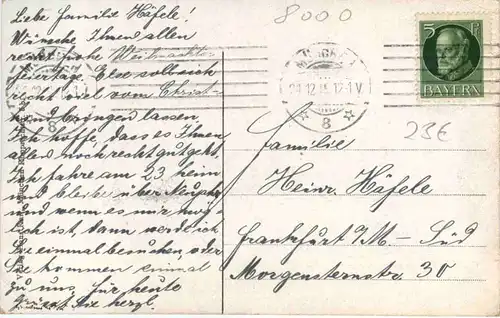 Liebe Familie Häfele!
Wünsche Ihnen allen
recht frohe Weihnachts-
feiertage. Else soll sich
recht viel vom Christ-
kind bringen lassen.
Ich hoffe, dass es Ihnen
allen noch recht gut geht.
Ich fahre am 23. heim
und bleibe über Neujahr
und wenn es mir mög-
lich ist, dann werde ich
Sie einmal besuchen, oder
Sie kommen einmal
zu uns. für heute
grüsst Sie herzl.
8000
5
BAYERN
12-1 V
8
23€
Familie
Heinr. Häfele
Frankfurt a/M – Süd
Morgensternstr. 30